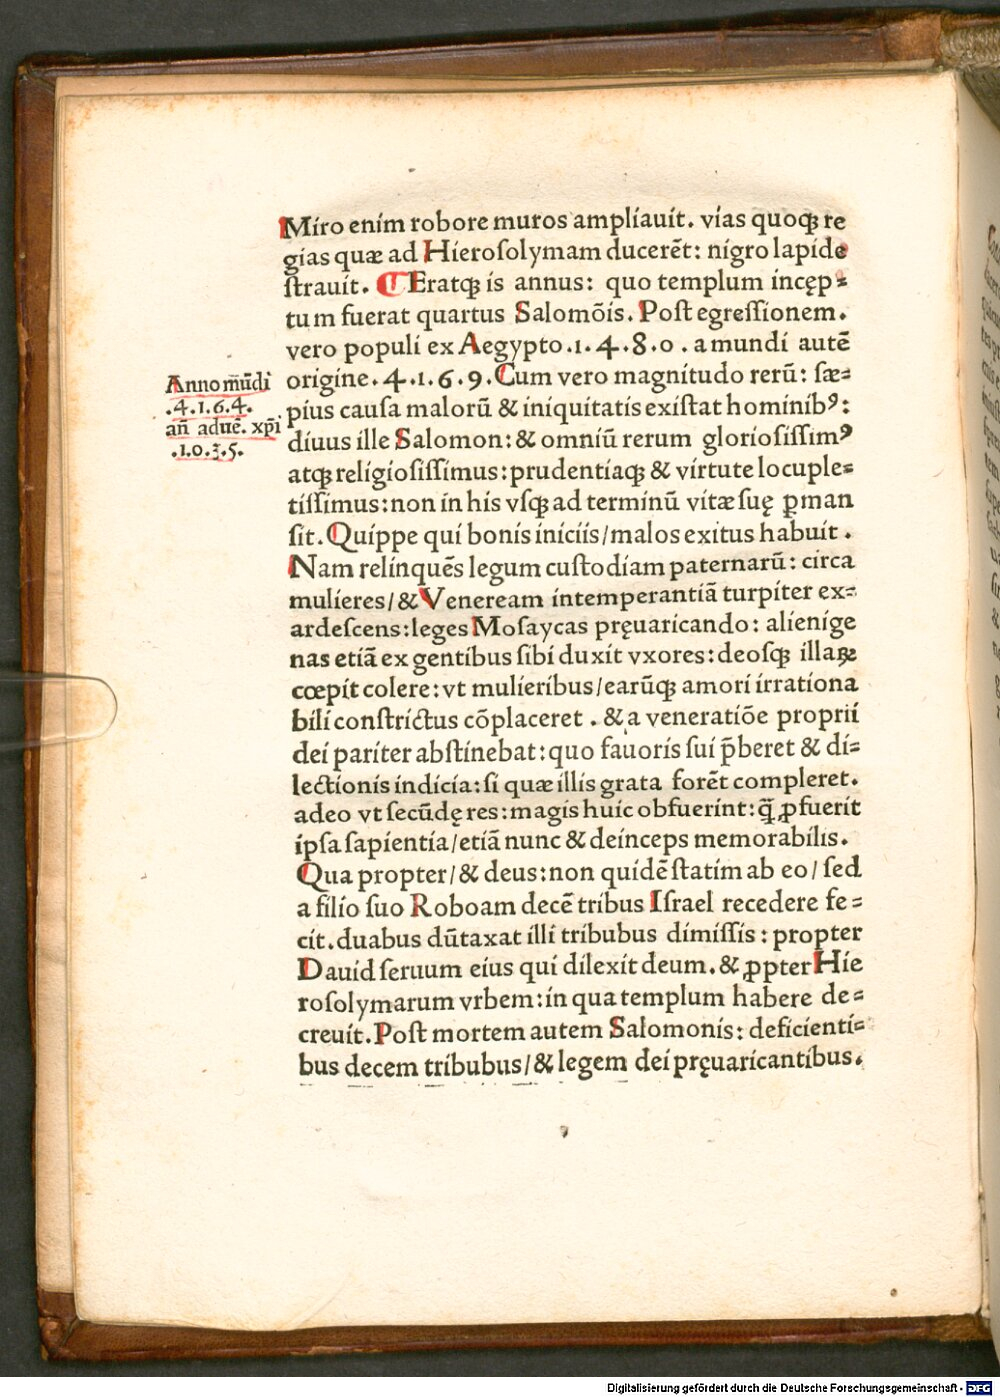 Miro enim robore muros ampliauit. vias quoqꝫ re
gias quæ ad Hieroſolymam ducerēt: nigro lapide
ſtrauit. ¶ Eratqꝫ is annus: quo templum incęp⸗
tum fuerat quartus Salomōis. Poſt egreſſionem.
vero populi ex Aegypto .1.4.8.0. a mundi autē
origine .4.1.6.9. Cum vero magnitudo rerū: ſæ⸗
pius cauſa malorū & iniquitatis exiſtat hominibꝰ:
diuus ille Salomon: & omniū rerum glorioſiſſimꝰ
atqꝫ religioſiſſimus: prudentiaqꝫ & virtute locuple⸗
tiſſimus: non in his vſqꝫ ad terminū vitæ ſuę ꝑman
ſit. Quippe qui bonis iniciis/ malos exitus habuit.
Nam relinquēs legum cuſtodiam paternarū: circa
mulieres/ & Veneream intemperantiā turpiter ex⸗
ardeſcens: leges Moſaycas pręuaricando: alienige
nas etiā ex gentibus ſibi duxit vxores: deoſqꝫ illaꝝ
cœpit colere: vt mulieribus/ earūqꝫ amori irrationa
bili conſtrictus cōplaceret. & a veneratiōe proprii
dei pariter abſtinebat: quo fauoris ſui p̄beret & di⸗
lectionis indicia: ſi quæ illis grata forēt compleret.
adeo vt ſecūdę res: magis huic obfuerint: q̄ ꝓfuerit
ipſa ſapientia/ etiā nunc & deinceps memorabilis.
Qua propter/ & deus: non quidē ſtatim ab eo/ ſed
a filio ſuo Roboam decē tribus Iſrael recedere fe⸗
cit. duabus dūtaxat illi tribubus dimiſſis: propter
Dauid ſeruum eius qui dilexit deum. & ꝓpter Hie
roſolymarum vrbem: in qua templum habere de⸗
creuit. Poſt mortem autem Salomonis: deficienti⸗
bus decem tribubus/ & legem dei pręuaricantibus.
Anno mūdi
.4.1.6.4.
an̄ aduē. xp̄i
.1.0.3.5.
Digitalisierung gefördert durch die Deutsche Forschungsgemeinschaft - DFG